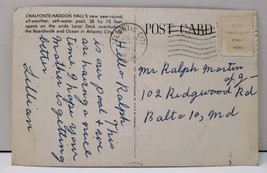 CHALFONTE-HADDON HALL'S new year-round,
all-weather, salt-water pool, 28 by 75 feet
opens on the wide Local Deck overlooking
the Boardwalk and Ocean in Atlantic City
POST CARD
Hello Ralph
This is our pool & we
are having a nice
time. I hope your
mother is getting
better
Lillian
Mr Ralph Martin
102 Ridgewood Rd
Balto 10, Md